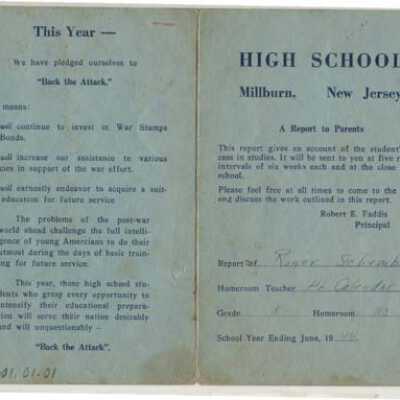 This Year —
We have pledged ourselves to
"Back the Attack."
means:
will continue to invest in War Stamps
Bonds.
will increase our assistance to various
cies in support of the war effort.
will earnestly endeavor to acquire a suit-
education for future service
The problems of the post-war
world ahead challenge the full intelli-
gence of young Amercians to do their
utmost during the days of basic train-
ing for future service.
This year, those high school stu-
dents who grasp every opportunity to
intensify their educational prepara-
tion will serve their nation desirably
and will unquestionably —
"Back the Attack".
01.01-01
HIGH SCHOOL
Millburn, New Jersey
A Report to Parents
This report gives an account of the student's
case in studies. It will be sent to you at five r
intervals of six weeks each and at the close
school.
Please feel free at all times to come to the
and discuss the work outlined in this report.
Robert E. Faddis
Principal
Report of Roger
Homeroom Teacher
Grade Homeroom
School Year Ending June, 1944